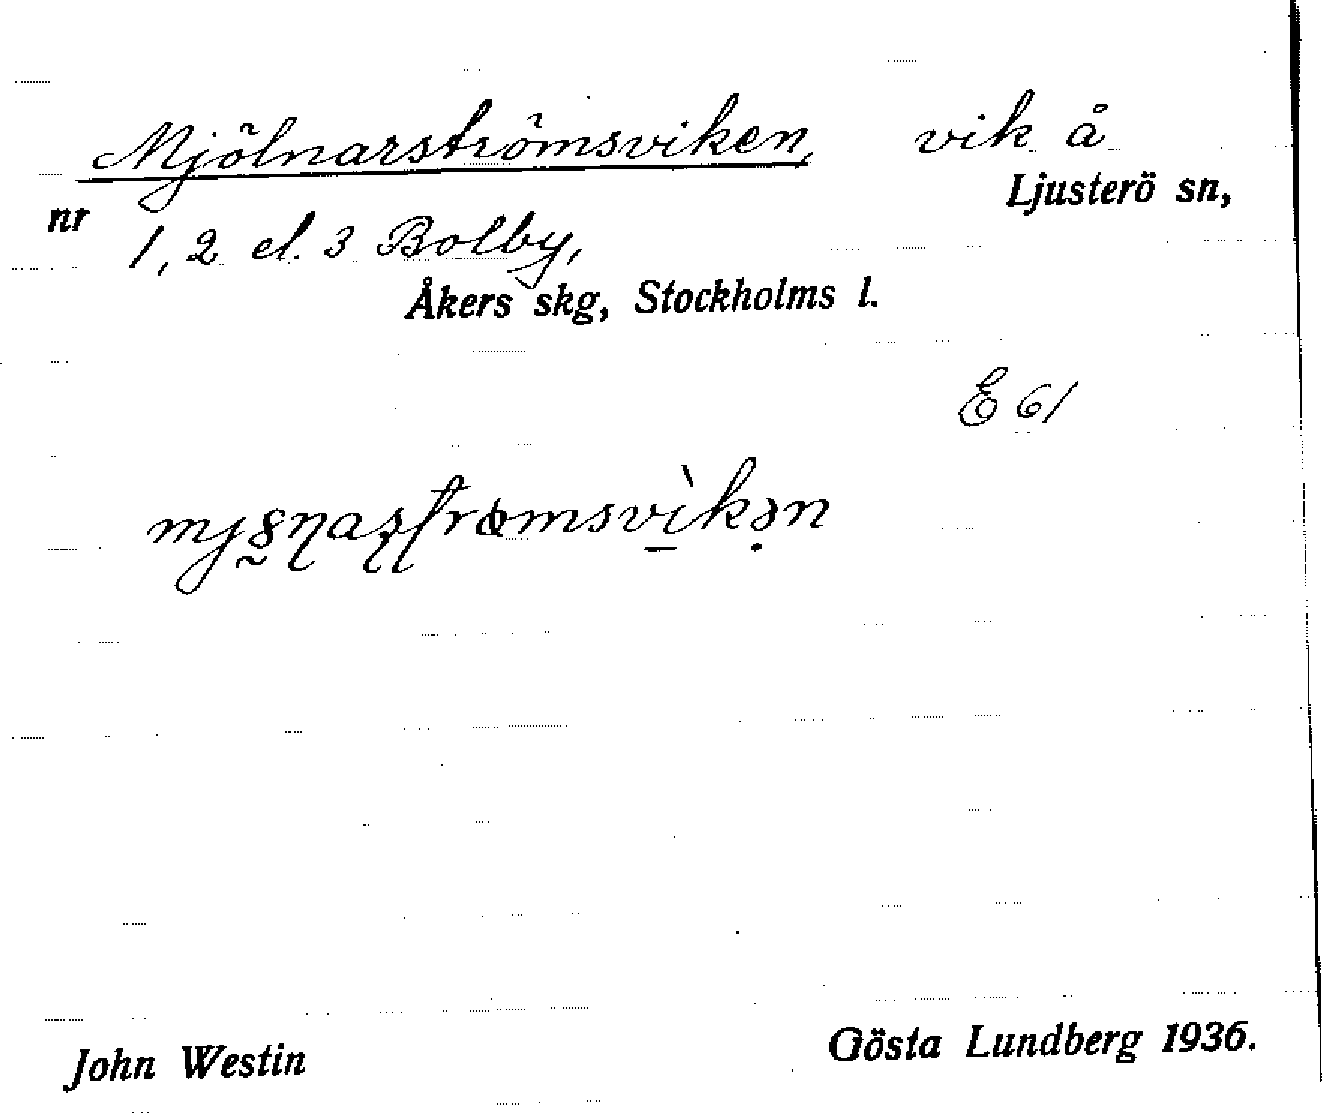 Mjölnarströmsviken, vik å
Ljusterö sn,
nr 1, 2 el. 3 Bolby,
Åkers skg, Stockholms l.
E 61
John Westin Gösta Lundberg 1936.